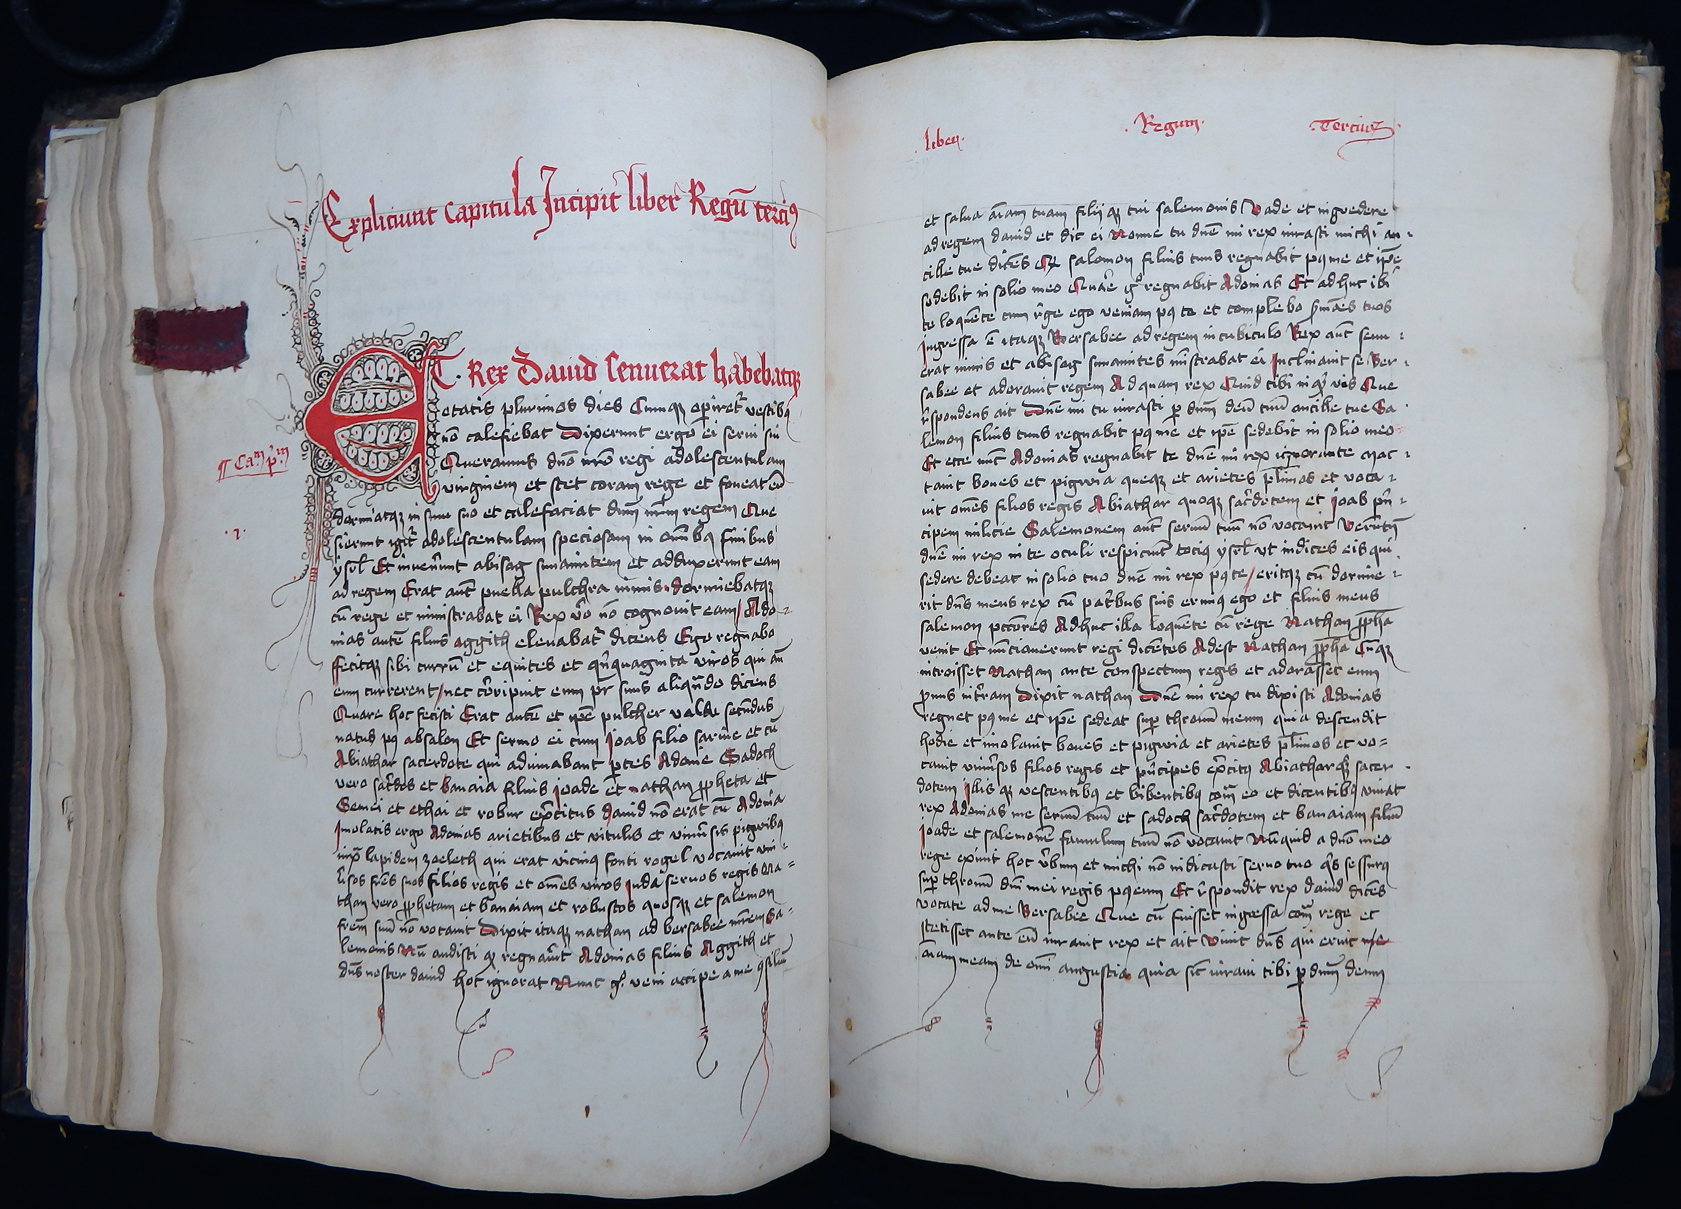 Expliciunt capitula Incipit liber Regū terciꝰ
ET Rex Dauid senuerat habebatqꝫ
etatis plurimos dies Cumqꝫ operiret᷑ vestibꝫ
nō calefiebat Dixerunt ergo ei serui sui
Queramus dn̄o nr̄o regi adolescentulam
virginem et stet coram rege et foueat eū
dormiatqꝫ in sinu suo et calefaciat dn̄m nr̄m regem Que
sierunt igit᷑ adolescentulam speciosam in om̄ibꝫ finibus
ysrl̄ Et inuener̄nt abisag sunamitem et adduxerunt eam
ad regem Erat aut̄ puella pulchra nimis dormiebatqꝫ
cū rege et ministrabat ei Rex v̄o nō cognouit eam / Ado
nias autē filius aggith eleuabat᷑ dicens Ego regnabo
ffecitqꝫ sibi currū et equites et qn̄quaginta viros qui an̄
eum currerent / nec cōripuit eum pr̄ suus aliqn̄do dicens
Quare hoc fecisti Erat autē et ip̄e pulcher valde secūdus
natus pꝰ absalon Et sermo ei cum Joab filio saruie et cū
Abiathar sacerdote qui adiuuabant ꝑtes Adonie Sadoch
vero sac̄dos et banaia filius ioade et nathan ꝓpheta et
Semei et ethai et robur ex̄citus dauid nō erat cū Adonia
Jmolatis ergo Adonias arietibus et vitulis et vniu̇sis pigwibꝫ
iuxᵃ lapidem zoeleth qui erat vicinꝰ fonti rogel vocauit vni
u̇sos fr̄es suos filios regis et om̄es viros iuda seruos regis Na
than vero ꝓphetam et banaiam et robustos quosqꝫ et salemon
frēm suū nō vocauit Dixit itaqꝫ nathan ad bersabee mr̄em Sa
lemonis Nū audisti qꝫ regnau̇it Adonias filius Aggith et
dn̄s noster dauid hoc ignorat Nunc gͦ veni accipe a me ꝯsiliū
¶ Caᵐ pᵐ
·i·
liber
·Regum·
·Terciusꝰ·
et salua āiam tuam filii qꝫ tui salemonis Vade et ingredere
ad regem dauid et dic ei Nonne tu dn̄e mi rex iurasti michi an
cille tue dicēs Qꝫ salomon filius tuus regnabit pꝰ me et ip̄e
sedebit in solio meo Quar̄e gͦ regnabit Adonias Et adhuc ibi
te loquēte cum rege ego veniam pꝰ te et complebo ẜmōes tuos
Jngressa ē itaqꝫ Bersabee ad regem in cubiculo Rex aut̄ senu
erat nimis et abisag sunamites mīstrabat ei Jnclinauit se Ber
sabee et adorauit regem Ad quam rex Quid tibi inqͥt vis Que
r̄spondens ait Dn̄e mi tu iurasti ꝑ dn̄m deū tuū ancille tue Sa
lemon filius tuus regnabit pꝰ me et ip̄e sedebit in solio meo
Et ecce nūc Adonias regnabit te dn̄e mi rex ignorante Mac
tauit boues et pigwia queqꝫ et arietes pl̄imos et voca
uit om̄es filios regis Abiathar quoqꝫ sac̄dotem et ioab pn̄
cipem milicie Salemonem aut̄ seruū tuū nō vocauit Verūtn̄
dn̄e mi rex in te oculi respiciūt tociꝰ ysrl̄ vt indices eis qui
sedere debeat in solio tuo dn̄e mi rex pꝰ te / eritqꝫ cū dormie
rit dn̄s meus rex cū patribus suis erimꝰ ego et filius meus
salemon pccōres Adhuc illa loquēte cū rege Nathan ꝓpha
venit Et nūciauerunt regi dicētes Adest Nathan ꝓpha Cūqꝫ
introisset Nathan ante conspectum regis et adorasset eum
ꝓnus in tr̄am Dixit nathan Dn̄e mi rex tu dixisti Adonias
regnet pꝰ me et ip̄e sedeat suꝑ thronū meum quia descendit
hodie et imolauit boues et pigwia et arietes pl̄imos et vo
cauit vniu̇sos filios regis et pn̄cipes ex̄citꝰ Abiathar qͦꝫ sacer
dotem Jllis qꝫ vescentibꝫ et bibentibꝫ corā eo et dicentibꝫ viuat
rex Adonias me seruū tuū et sadoch sac̄dotem et banaiam filiū
Joade et salemonē famulum tuū nō vocauit Nūquid a dn̄o meo
rege exiuit hoc v̄bum et michi nō indicasti seruo tuo qͥs sessurꝰ
suꝑ thronū dn̄i mei regis pꝰ eum Et r̄spondit rex dauid dicēs
vocate ad me Bersabee Que cū fuisset ingressa corā rege et
stetisset ante eū iurauit rex et ait Viuit dn̄s qui eruit me
āiam meam de om̄i angustia quia sic̄ iuraui tibi ꝑ dn̄m deum